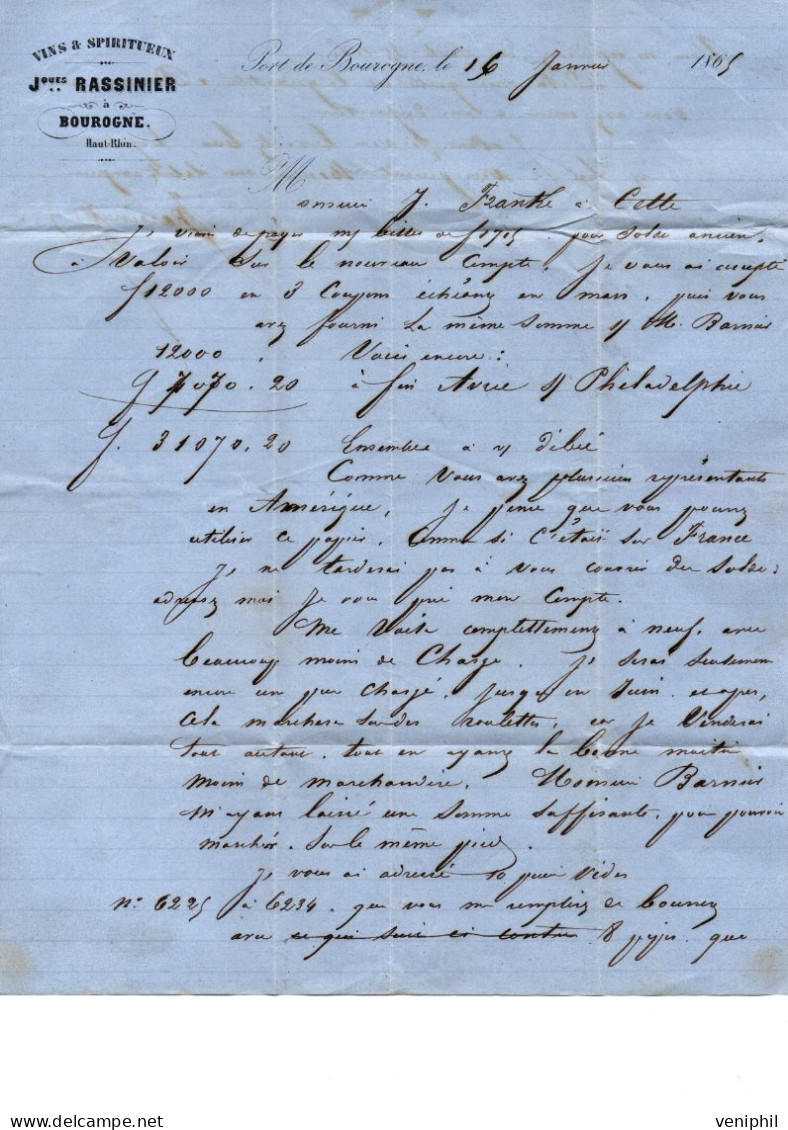 VINS & SPIRITUEUX
Jques RASSINIER
à
BOUROGNE.
Haut-Rhin.
Port de Bourogne, le 16 Janvier 1865
M
onsieur J. Franke à Cette
Je viens de payer m/ billet de f 1705 pour solde ancien.
à Valoir sur le nouveau Compte. Je vous ai accepté
f 12000 en 3 Coupons échéanz en mars, puis vous
avez fourni la même somme s/ M. Barnier
12000 . Voici encore :
7070.20 à fin Avril s/ Philadelphie
f. 31070.20 Ensemble à v/ débit
Comme vous avez plusieurs représentants
en Amérique, je pense que vous pourrez
utiliser ce papier, comme si c'était sur France
Je ne tarderai pas à vous couvrir du solde :
adressez moi je vous prie mon Compte.
Me voila complettement à neuf, avec
beaucoup moins de Charge. Je serai seulement
encore un peu chargé, jusqu'en Juin, et après,
cela marchera sur des roulettes, car je Vendrai
tout autant, tout en ayant la bonne moitié
moins de marchandise. Monsieur Barnier
m'ayant laissé une somme suffisante, pour pouvoir
marcher, sur le même pied.
Je vous ai adressé 10 pipes Vides
n° 6225 à 6234, que vous me remplirez de
avec ce qui suit ci contre 8 pipes que
veniphil